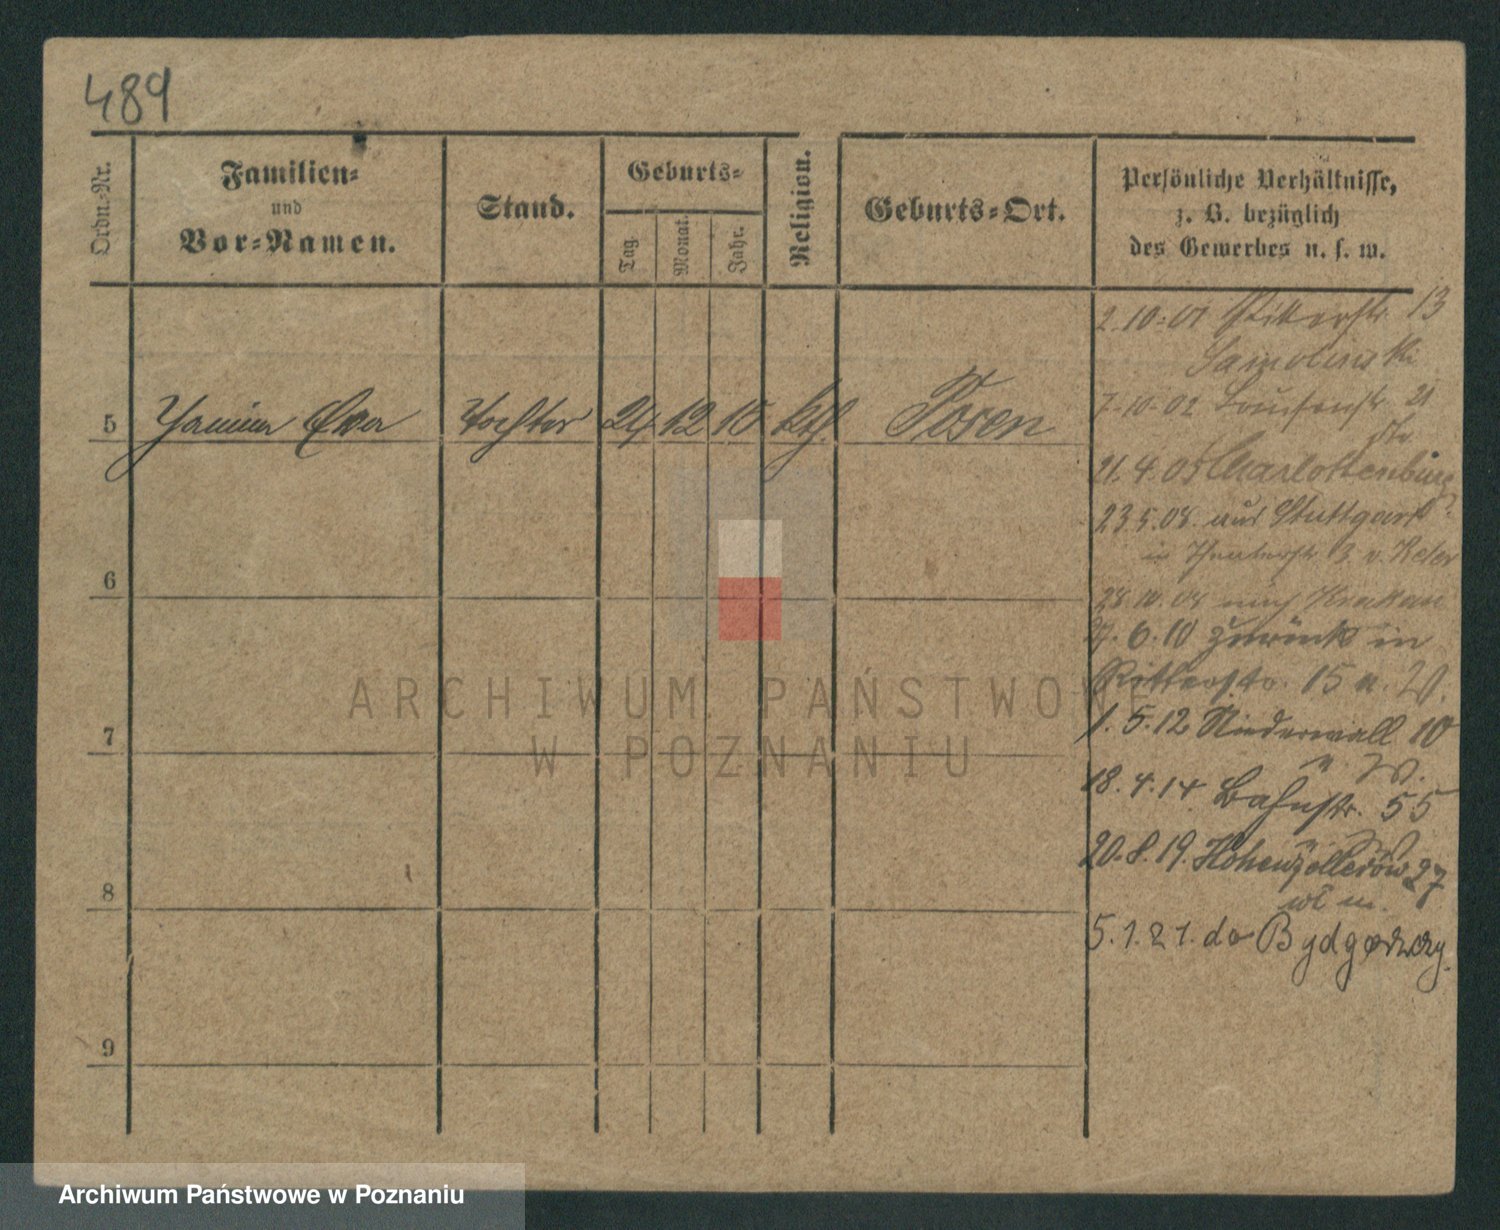 489
Ordn.-Nr.
Familien-
und
Vor-Namen.
Stand.
Geburts-
Tag.
Monat.
Jahr.
Religion.
Geburts-Ort.
Persönliche Verhältnisse,
z. B. bezüglich
des Gewerbes u. s. w.
5
Janina Eva
Tochter
24
12
10
kth.
Posen
6
7
8
9
2.10.01 Ritterstr. 13
7.10.02 Louisenstr. 21
21.4.05 Charlottenburg
23.5.08. aus Stuttgart
in
28.10.08 nach Krakau
27.6.10 zurück in
Ritterstr. 15 u. W.
1.5.12 Niederwall 10
u. W.
18.4.14. Bahnstr. 55
20.8.19. 27
5.1.21. do Bydgoszczy.
ARCHIWUM PAŃSTWOWE
W POZNANIU
Archiwum Państwowe w Poznaniu